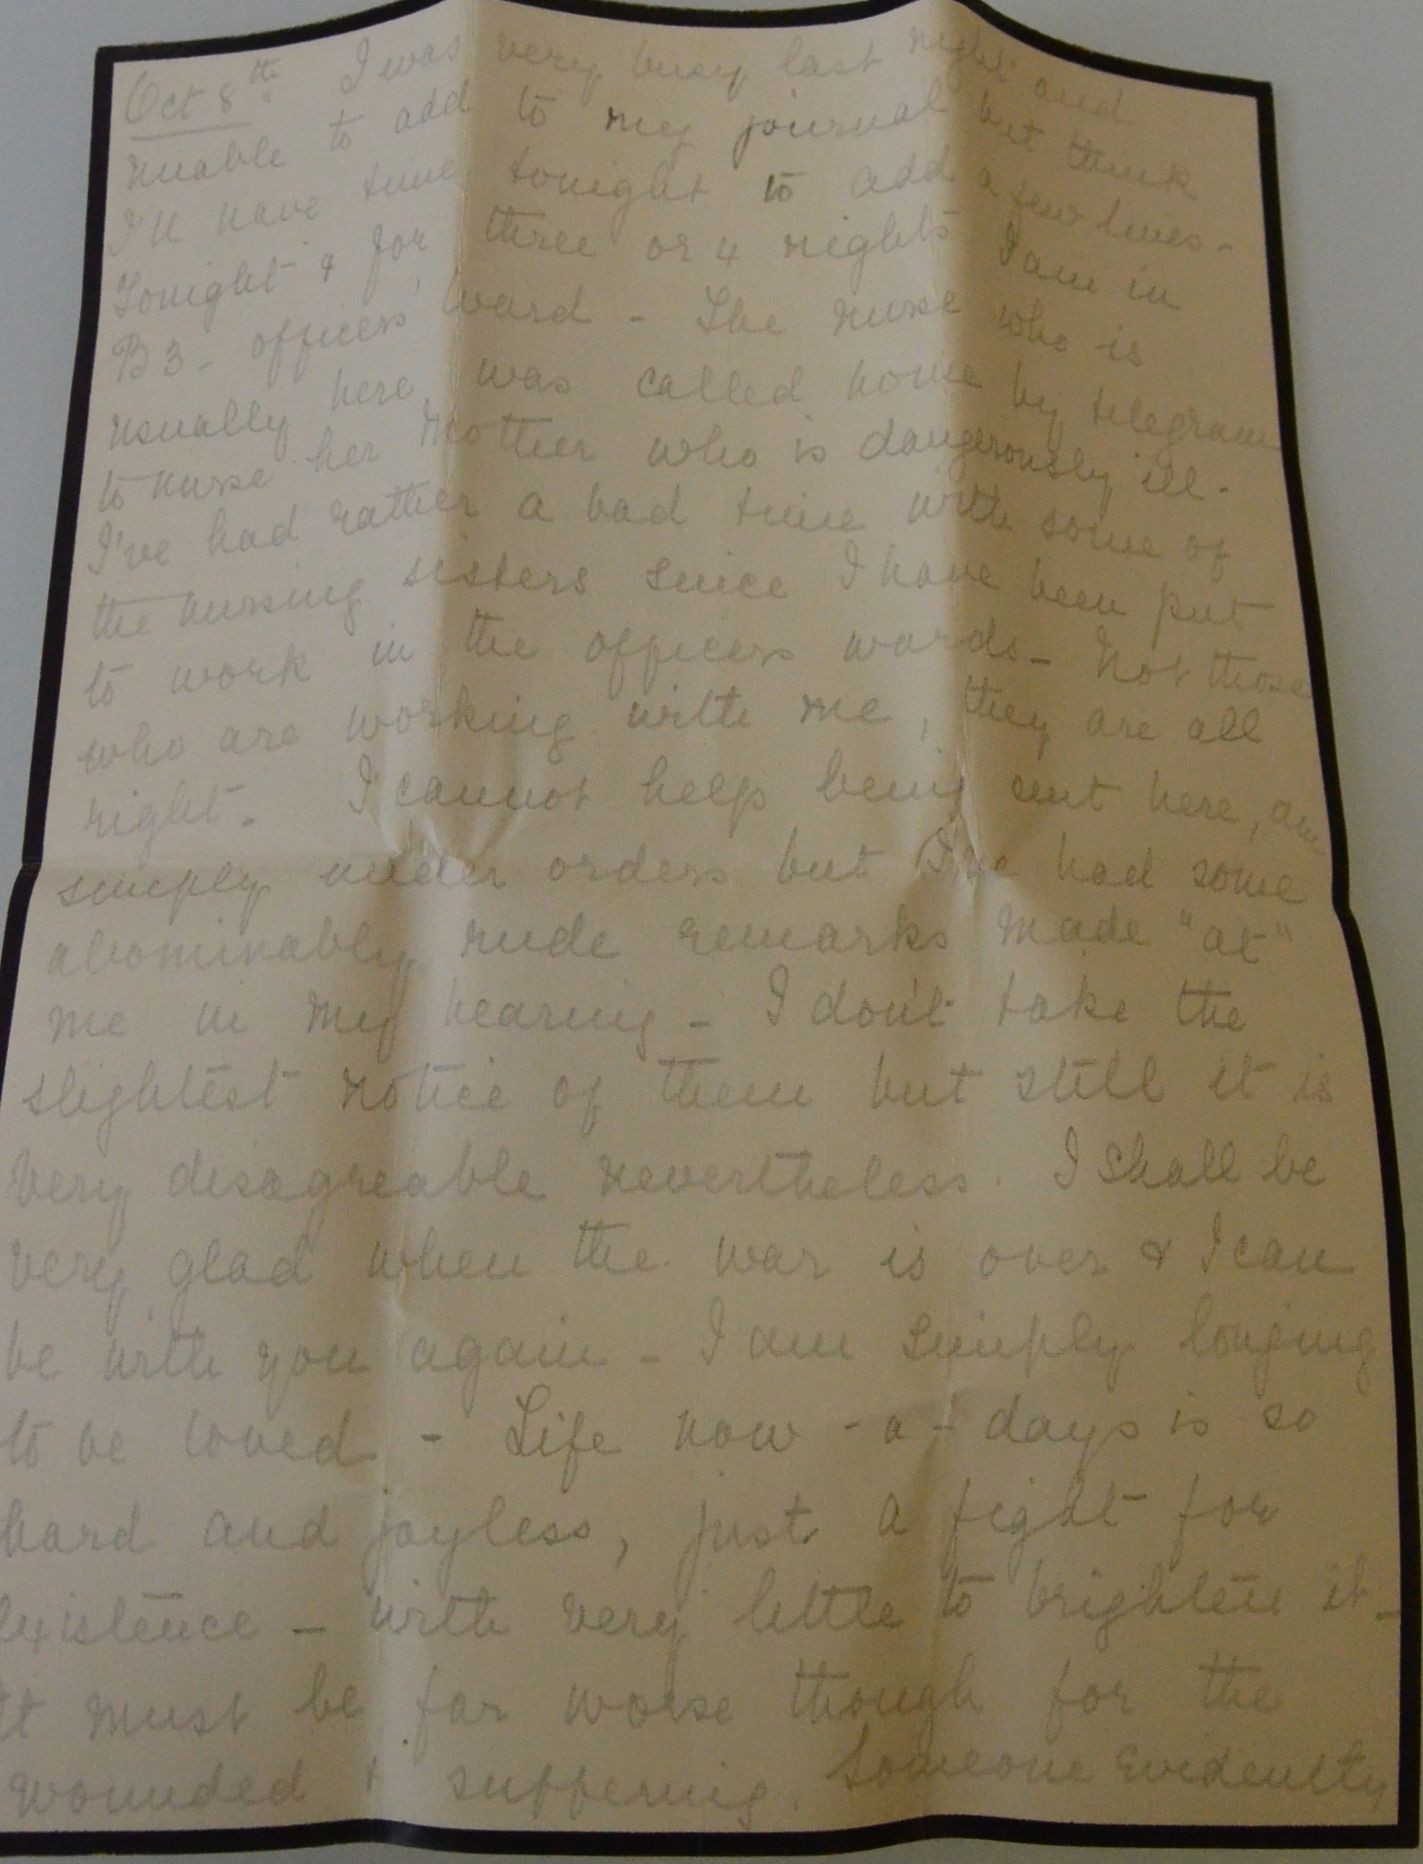 Oct 8th. I was very busy last night and
unable to add to my journal but think
I'll have time tonight to add a few lines -
Tonight & for three or 4 nights I am in
B3 - officers' ward - The nurse who is
usually here was called home by telegram
to nurse her Mother who is dangerously ill.
I've had rather a bad time with some of
the nursing sisters since I have been put
to work in the officers wards - Not those
who are working with me, they are all
right. I cannot help being sent here, am
simply under orders but I've had some
abominably rude remarks made "at"
me in my hearing - I don't take the
slightest notice of them but still it is
very disagreeable nevertheless. I shall be
very glad when the war is over & I can
be with you again - I am simply longing
to be loved - Life now-a-days is so
hard and joyless, just a fight for
existence - with very little to brighten it -
It must be far worse though for the
wounded & suffering. Someone evidently